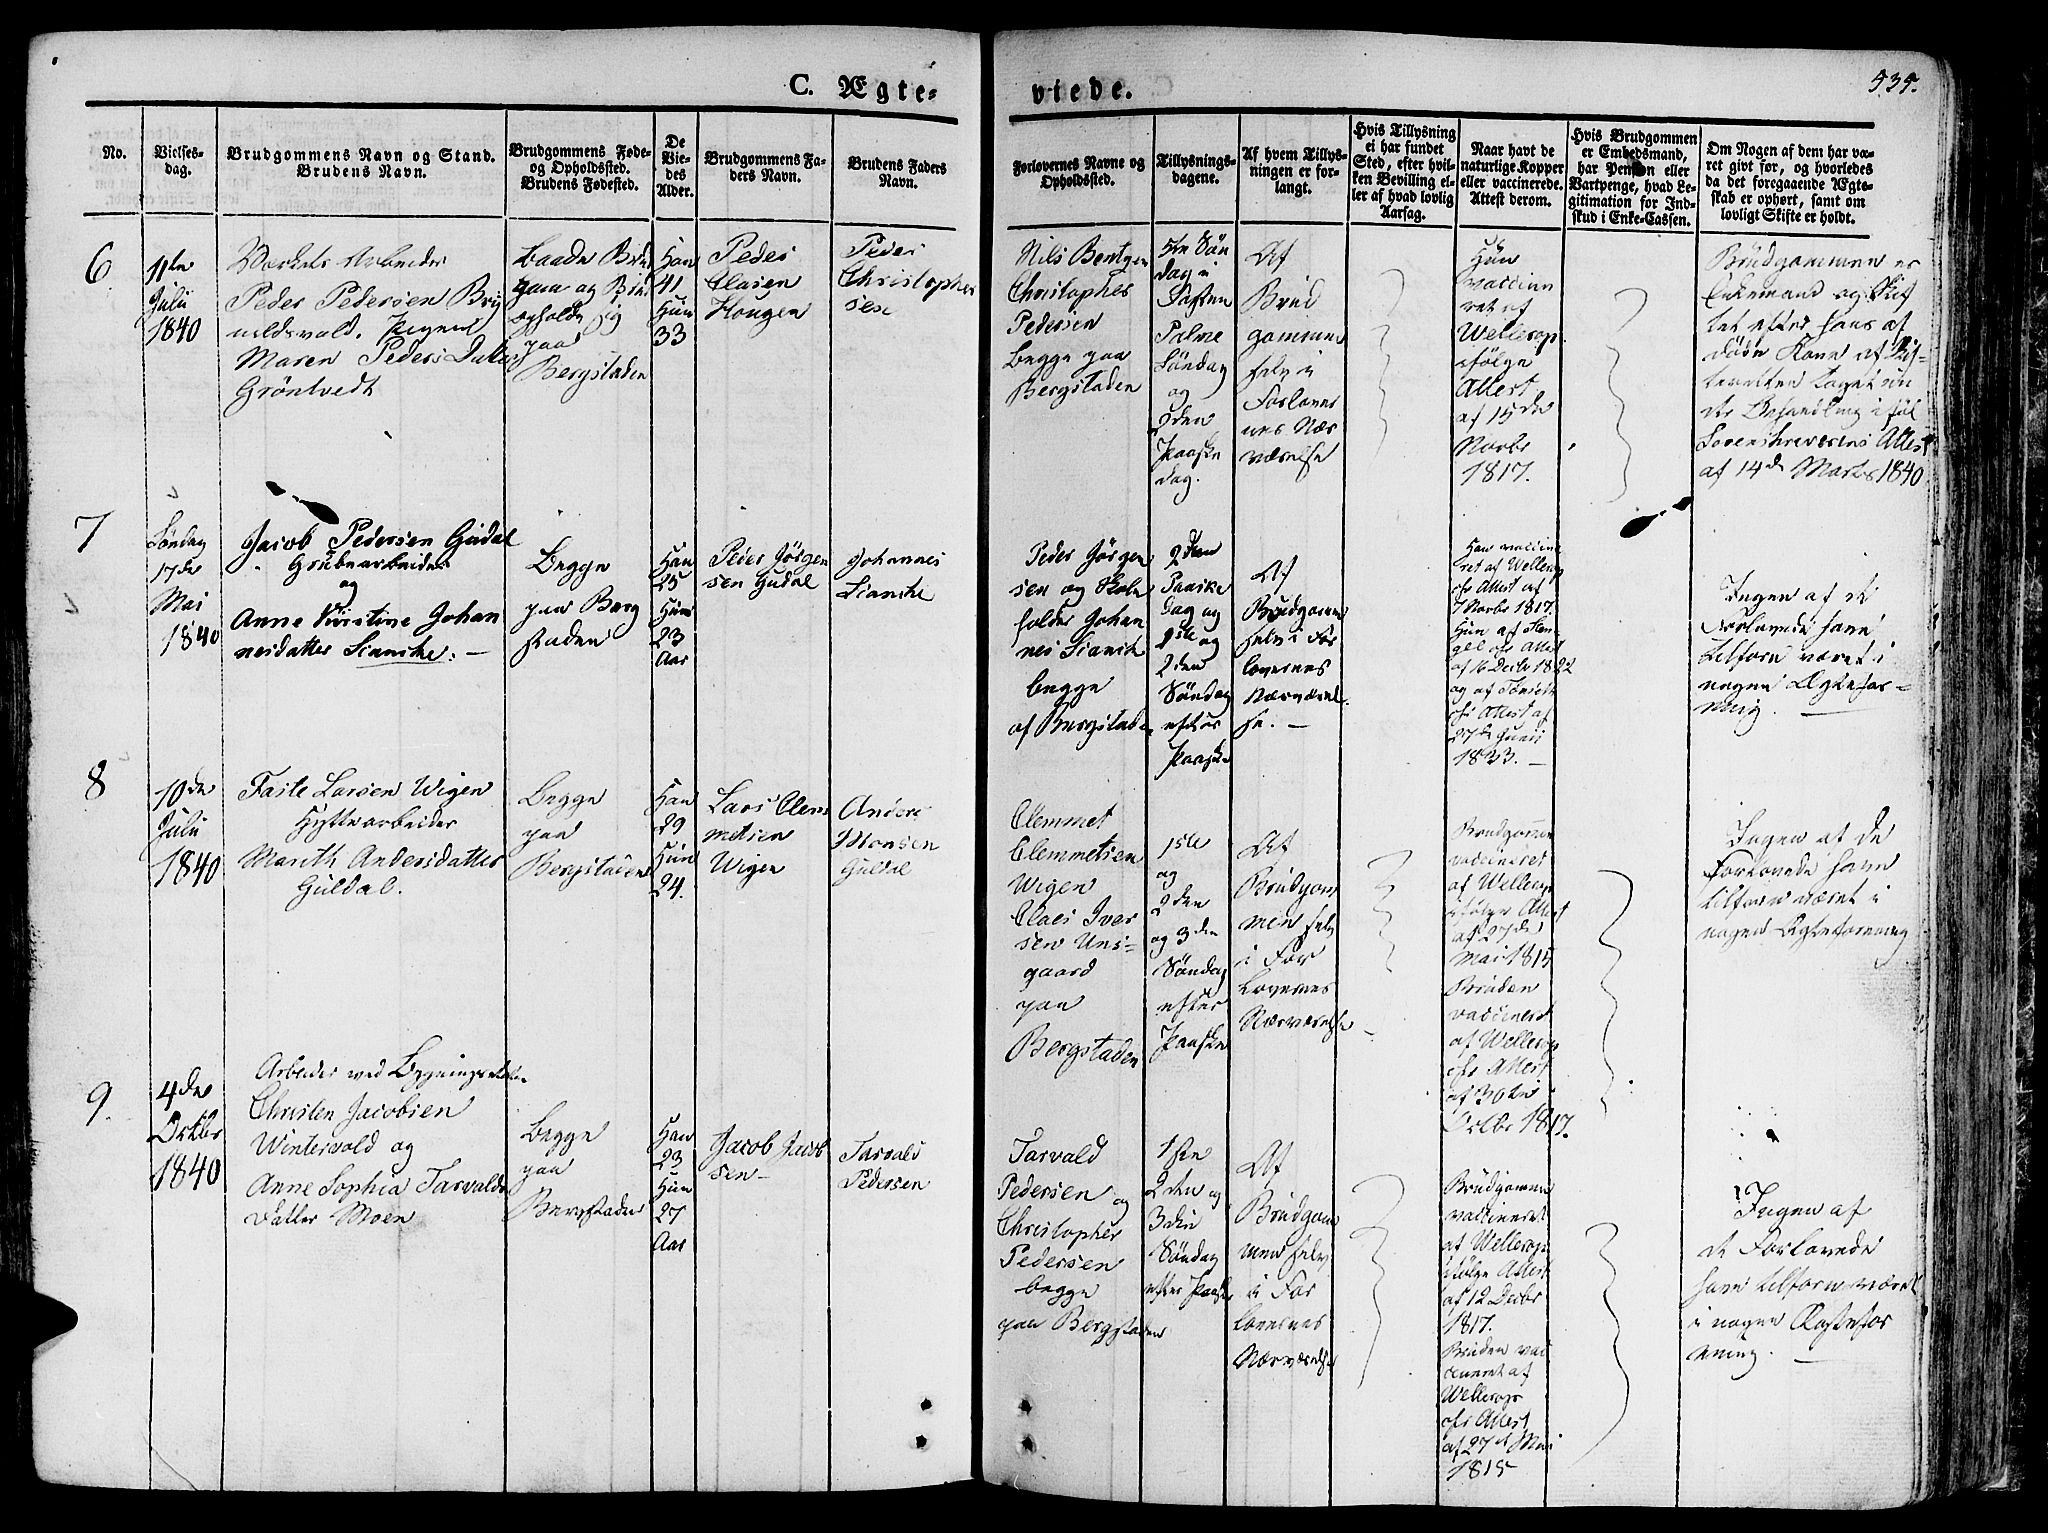 C. Ægte-
viede.
535.
No.
Vielses-
dag.
Brudgommens Navn og Stand.
Brudens Navn.
Brudgommens Føde-
og Opholdssted.
Brudens Fødested.
De
Vie-
des
Alder.
Brudgommens Fa-
ders Navn.
Brudens Faders
Navn.
Forlovernes Navne og
Opholdssted.
Tillysnings-
dagene.
Af hvem Tillys-
ningen er for-
langt.
Hvis Tillysning
ei har fundet
Sted, efter hvil-
ken Bevilling el-
ler af hvad lovlig
Aarsag.
Naar havt de
naturlige Kopper
eller vaccinerede.
Attest derom.
Hvis Brudgommen
er Embedsmand,
har Pension eller
Vartpenge, hvad Le-
gitimation for Ind-
skud i Enke-Cassen.
Om Nogen af dem har væ-
ret givt før, og hvorledes
da det foregaaende Ægte-
skab er ophørt, samt om
lovligt Skifte er holdt.
6
11te
Juli
1840
Værkets Arbeider
Peder Pedersen Bry
nildsvold. Pigen
Maren Peders Datter
Grøntvedt
Baade Brud
gom og Brud
opholde sig
paa
Bergstaden
Han
41
Hun
33
Peder
Clasen
Hougen
Peder
Christopher
sen
Nils Bentzen
Christopher
Pedersen
begge paa
Bergstaden
5te Søn
dag i
Fasten
Palme
Søndag
og
2den
Paaske
dag.
Af
Brud
gommen
selv i
Forlover
nes Nær
værelse
Hun
vaccine
ret af
Wellerop
ifølge
Attest
af 15de
Novbr
1817.
Brudgommen er
Enkemand og Skif
tet efter hans af
døde Kone af Skif-
teretten taget un
der Behandling iføl
Sorenskriverens Attest
af 14de Marts 1840
7
Søndag
17de
Mai
1840
Jacob Pedersen Guldal
Grubearbeider
og
Anne Kirstine Johan
nesdatter Lianske. -
Begge
paa Berg
staden
Han
25
Hun
23
Aar
Peder Jørgen
sen Guldal
Johannes
Lianske
Peder Jørgen
sen og Skole
holder Johan
nes Lianske
begge
af Bergstaden
2den
Paaske
dag og
1ste og
2den
Søndag
efter
Paaske
Af
Brudgommen
selv i For
lovernes
Nærværel-
se. -
Han vaccine
ret af Wellerop
efr Attest af
7 Novbr 1817.
Hun af Sten
gel efr Attest
af 16 Decbr 1822
og af
efr Attest af
27de Junii
1823. -
Ingen af de
Forlovede have
tilforn været i
nogen Ægtefor-
ning.
8
10de
Juli
1840
Faste Larsen Wigen
Hyttearbeider
Marith Andersdatter
Guldal.
Begge
paa
Bergstaden
Han
29
Hun
24.
Lars Clem
metsen
Wigen
Anders
Monsen
Guldal
Clemmet
Clemmetsen
Wigen
Claes Iver
sen Uns-
gaard
paa
Bergstaden
1ste
og
2den
og 3den
Søndag
efter
Paaske
Af
Brudgom
men selv
i For
lovernes
Nærværelse
Brudgommen
vaccineret
af Wellerop
ifølge Attest
af 27de
Mai 1815
Bruden
vaccineret
af Wellerop
efr Attest
af 30te
Octbr 1817.
Ingen af de
Forlovede have
tilforn været i
nogen Ægteforening
9.
4de
Octbr
1840
Arbeider ved Bygningen
Christen Jacobsen
Wintervold og
Anne Sophia Tarvalds
datter Moen
Begge
paa
Bergstaden
Han
23
Hun
27
Aar
Jacob Jacob
sen -
Tarvald
Pedersen
Tarvald
Pedersen og
Christopher
Pedersen
begge
paa Bergstaden
1ste
2den og
3die
Søndag
efter Paaske
Af
Brudgom
men selv
i For
lovernes
Nærværelse
Brudgommen
vaccineret
af Wellerop
ifølge Attest
af 12 Decbr
1817.
Bruden vac
cineret af
Wellerop
efr Attest
af 27de Mai
1815
Ingen af
de Forlovede
have tilforn været
i nogen Ægtefor
ning. -